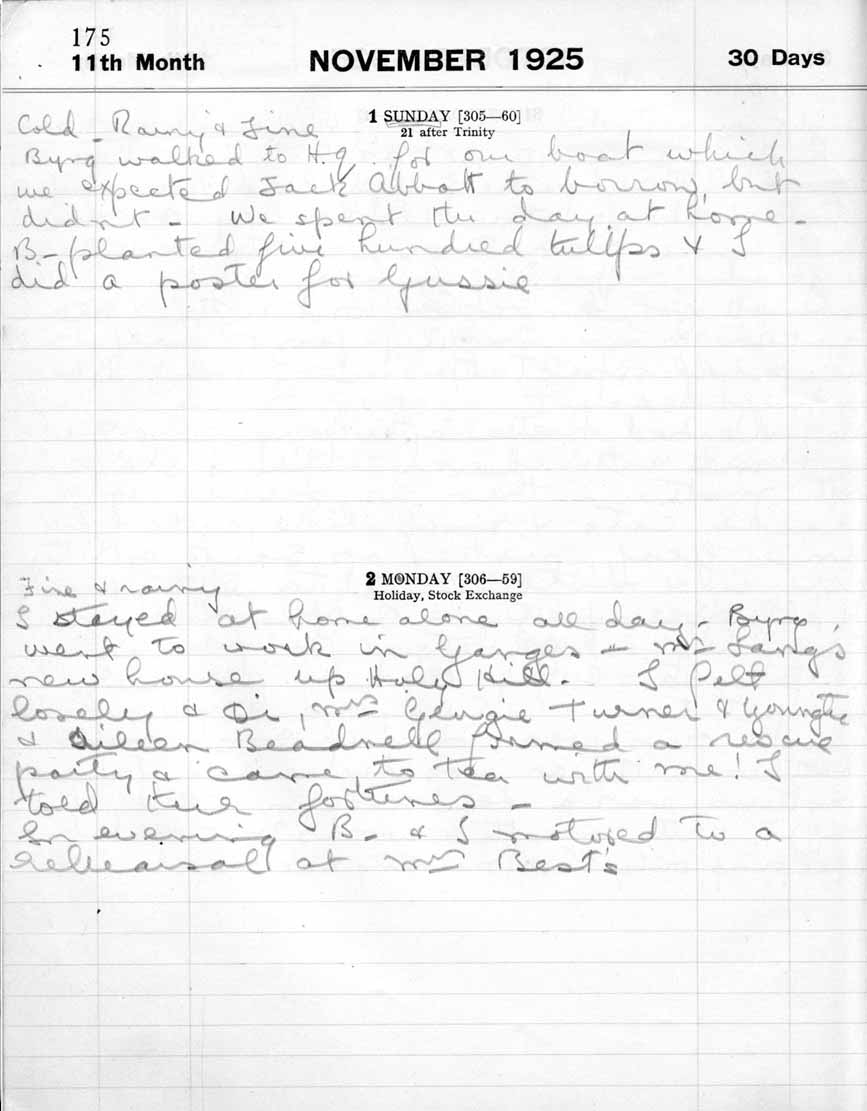 175
11th Month NOVEMBER 1925 30 Days
1 SUNDAY [305—60]
21 after Trinity
Cold - Rainy & Fine
Byrg walked to H.Q. for our boat which
we expected Jack Abbott to borrow, but
didn't - We spent the day at home -
B- planted five hundred tulips & I
did a poster for Gussie
2 MONDAY [306—59]
Holiday, Stock Exchange
Fine & rainy
I stayed at home alone all day - Byrg
went to work in Ganges - Mrs Langs
new house up Holy Hill. I felt
lonely & Di, Mrs Georgie Turner &
& Aileen Beadnell formed a rescue
party & came to tea with me! I
told their fortunes -
In evening B- & I motored to a
rehearsal at Mrs Best's